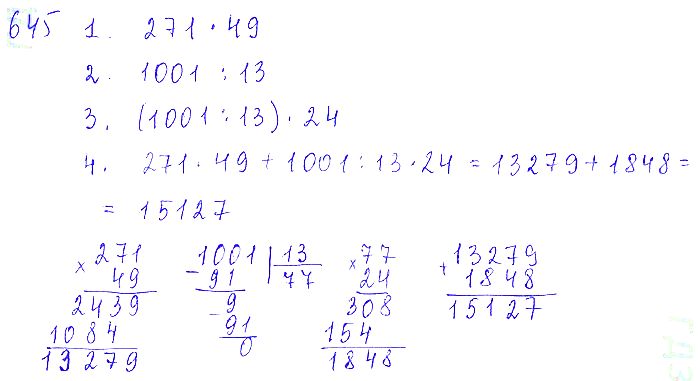 645 1. 271 · 49
2. 1001 : 13
3. (1001 : 13) · 24
4. 271 · 49 + 1001 : 13 · 24 = 13279 + 1848 =
= 15127
× 271
49
2439
1084
13279
- 1001 | 13
91 77
9
- 91
0
× 77
24
308
154
1848
+ 13279
1848
15127